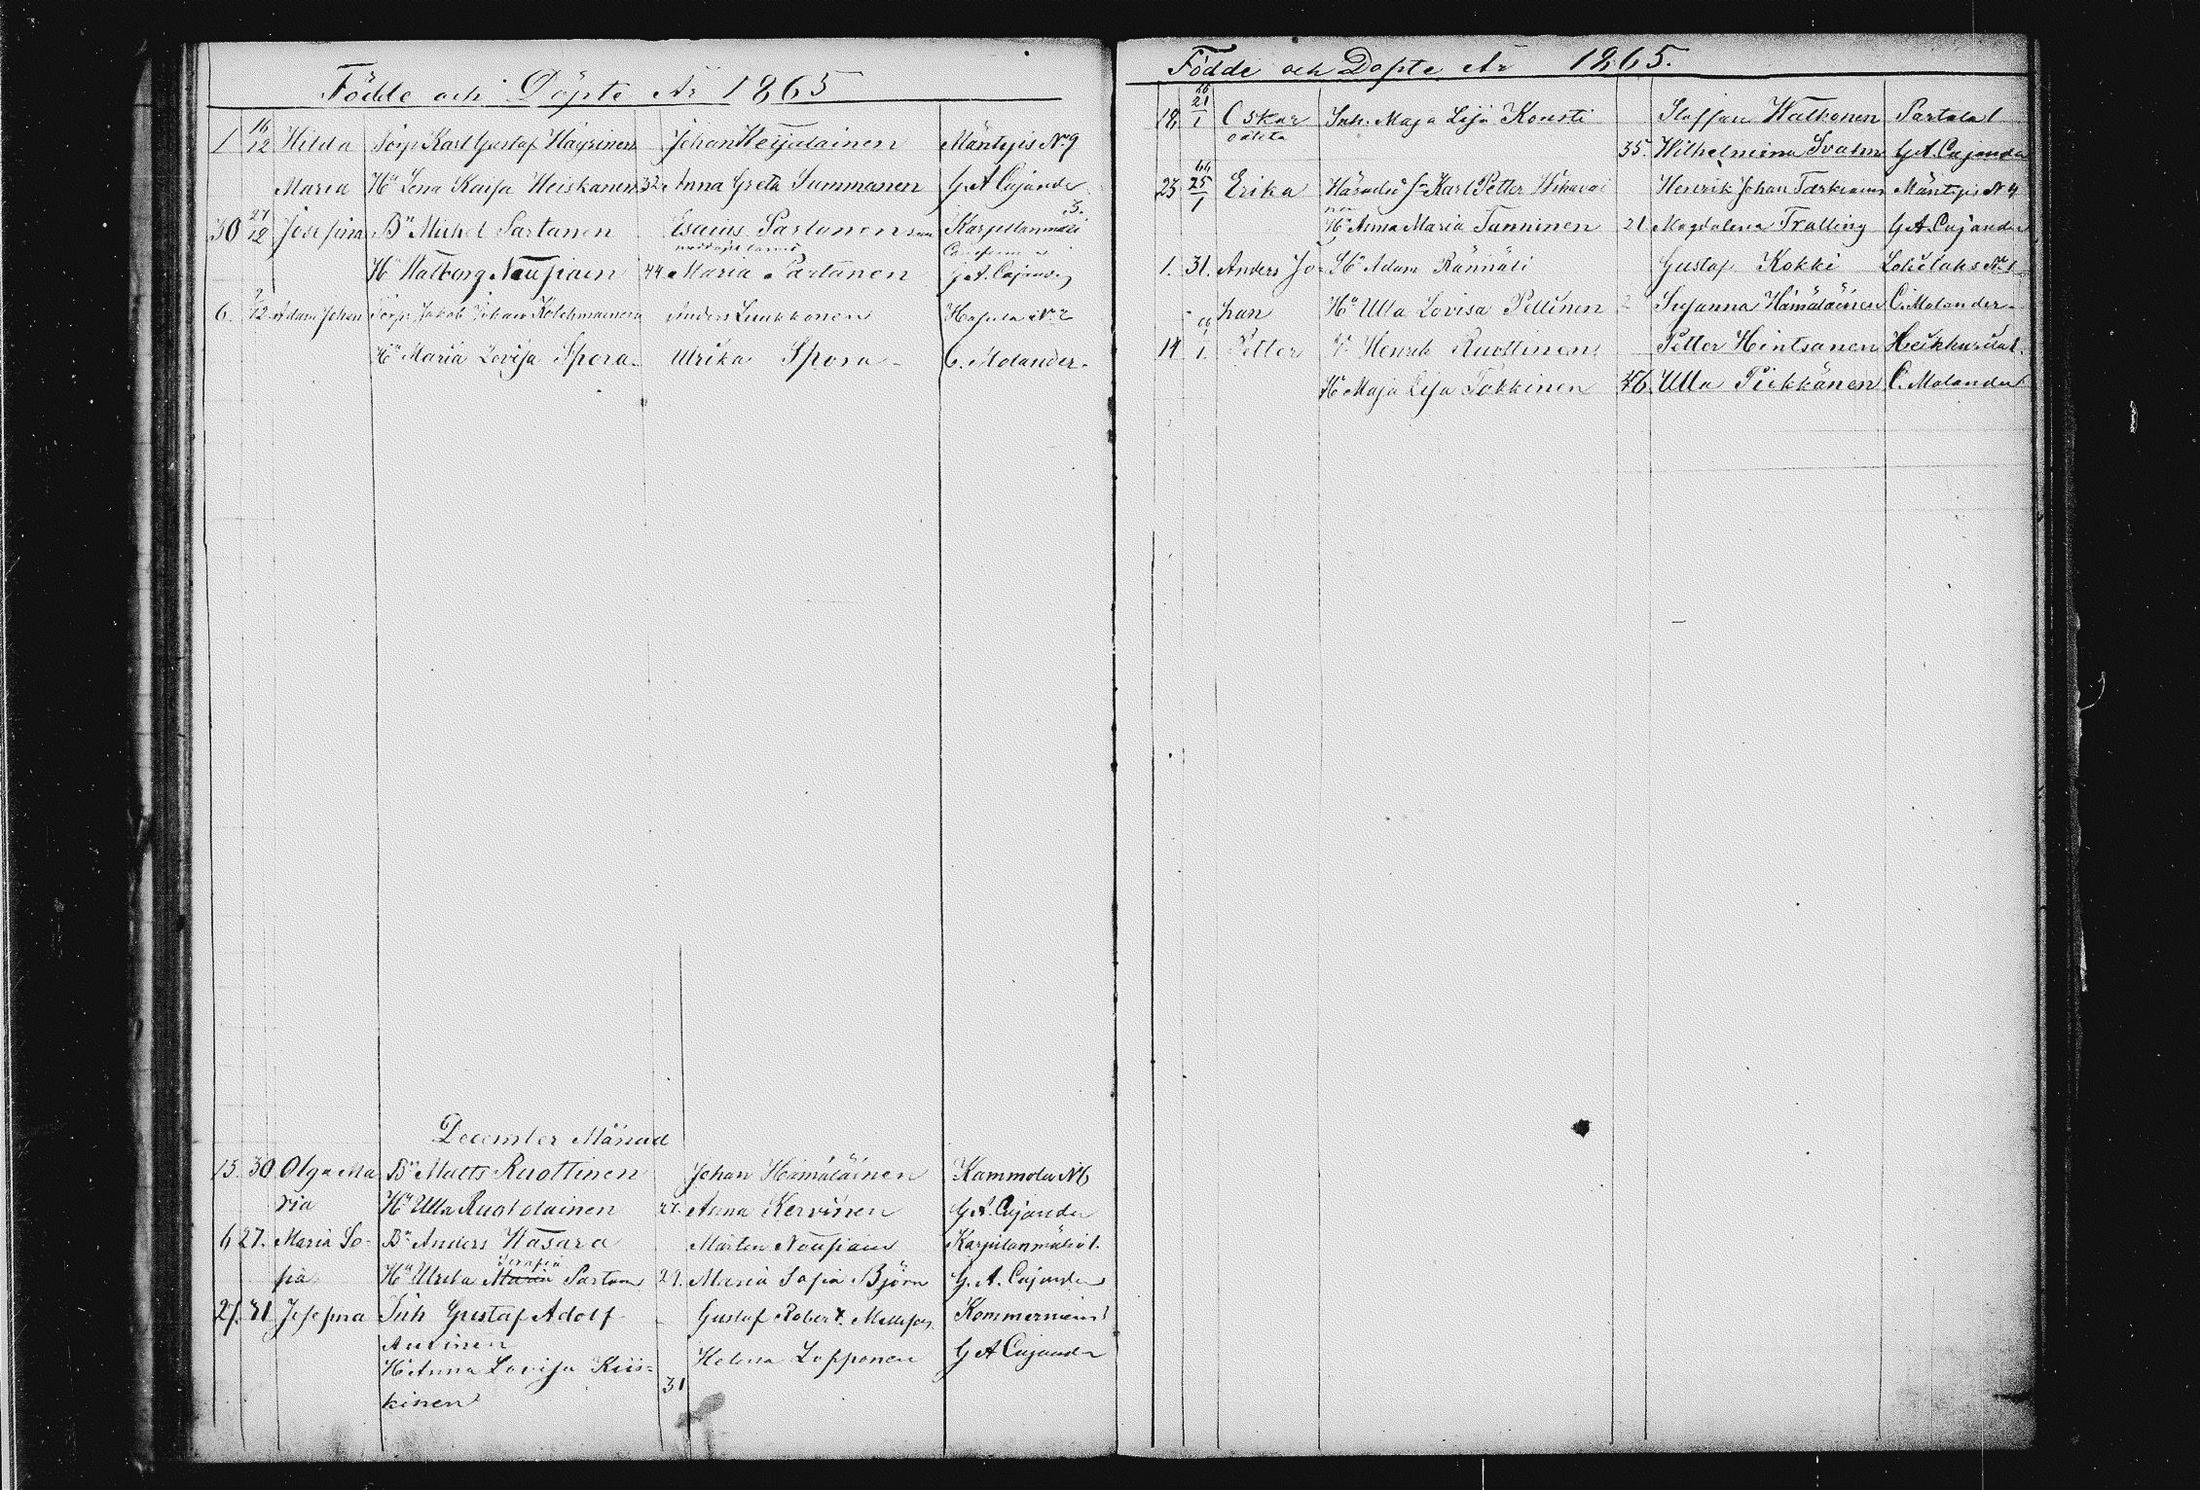 Födde och Döpte År 1865
1 16/12 Hilda Torp. Karl Gustaf Häyrinen Johan Heijalainen Mäntyjis No 9
Maria Hu Lena Kaisa Heiskanen 32. Anna Greta Summanen G A Cajander
30 27/12 Josefina Bn Michel Partanen Esaias Partanen Karpitanmäki 3.
Hu Walborg Nousiain 44 Maria Partanen G. A. Cajander
6. /12 Adam Johan Torp. Jakob Johan Kolehmainen Anders Luukkonen Hapula No 2
Hu Maria Lovisa Spora Ulrika Spora C. Molander.
December Månad
13. 30 Olga Ma Bn Matts Ruottinen Johan Hämäläinen Kammola No 6
ria Hu Ulla Ruotolainen 27. Anna Kervinen G A. Cajander
6 27. Maria So- Bn Anders Wasara Mårten Nousiain Karpitanmäki 1.
fia Hu Ulrika Maria Serafia Partan 29. Maria Sofia Björn G. A. Cajander
27. 31 Josefina Inh Gustaf Adolf Gustaf Robert Kommerniemi 1
Auvinen
Hu Anna Lovisa Kiis- 31 Helena Lopponen G A Cajander
kinen
Födde och Döpte År 1865.
18 21/1 Oskar Inh. Maja Lisa Konsti Staffan Walkonen Partala 1
oäkta 35. Wilhelmina Svahn G. A. Cajander
23 25/1 Erika Karl Petter Wihavai Henrik Johan Tarkiainen Mäntyjis No 4
nen Hu Anna Maria Tanninen 21 Magdalena Tralling G A. Cajander
1. 31. Anders Jo- Adam Rännäli Gustaf Kokki Lohilaks No 1
han Hu Ulla Lovisa Pellinen Susanna Hämäläinen C. Molander
14 /1. Petter Henrik Ruottinen Petter Hintsanen Heikkurila 1.
Hu Maja Lisa Tokkinen 46. Ulla Piikkänen C. Molander